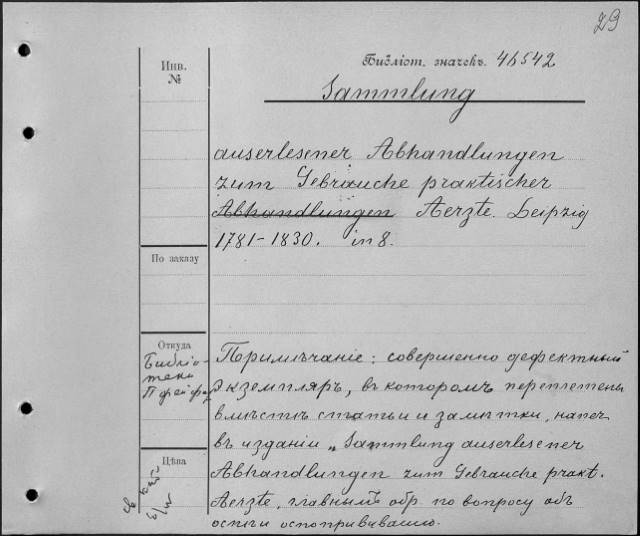 29
Инв.
№
Библіот. значекъ. 46542
Sammlung
auserlesener Abhandlungen
zum Gebrauche praktischer
Abhandlungen Aerzte. Leipzig
1781-1830. in 8.
По заказу
Откуда
Библіо-
теки
Цѣна
Примѣчаніе: совершенно дефектный
экземпляръ, въ которомъ переплетены
вмѣстѣ статьи и замѣтки, напеч
въ изданіи „Sammlung auserlesener
Abhandlungen zum Gebrauche prakt.
Aerzte, главнымъ обр. по вопросу объ
оспѣ и оспопрививаніи.